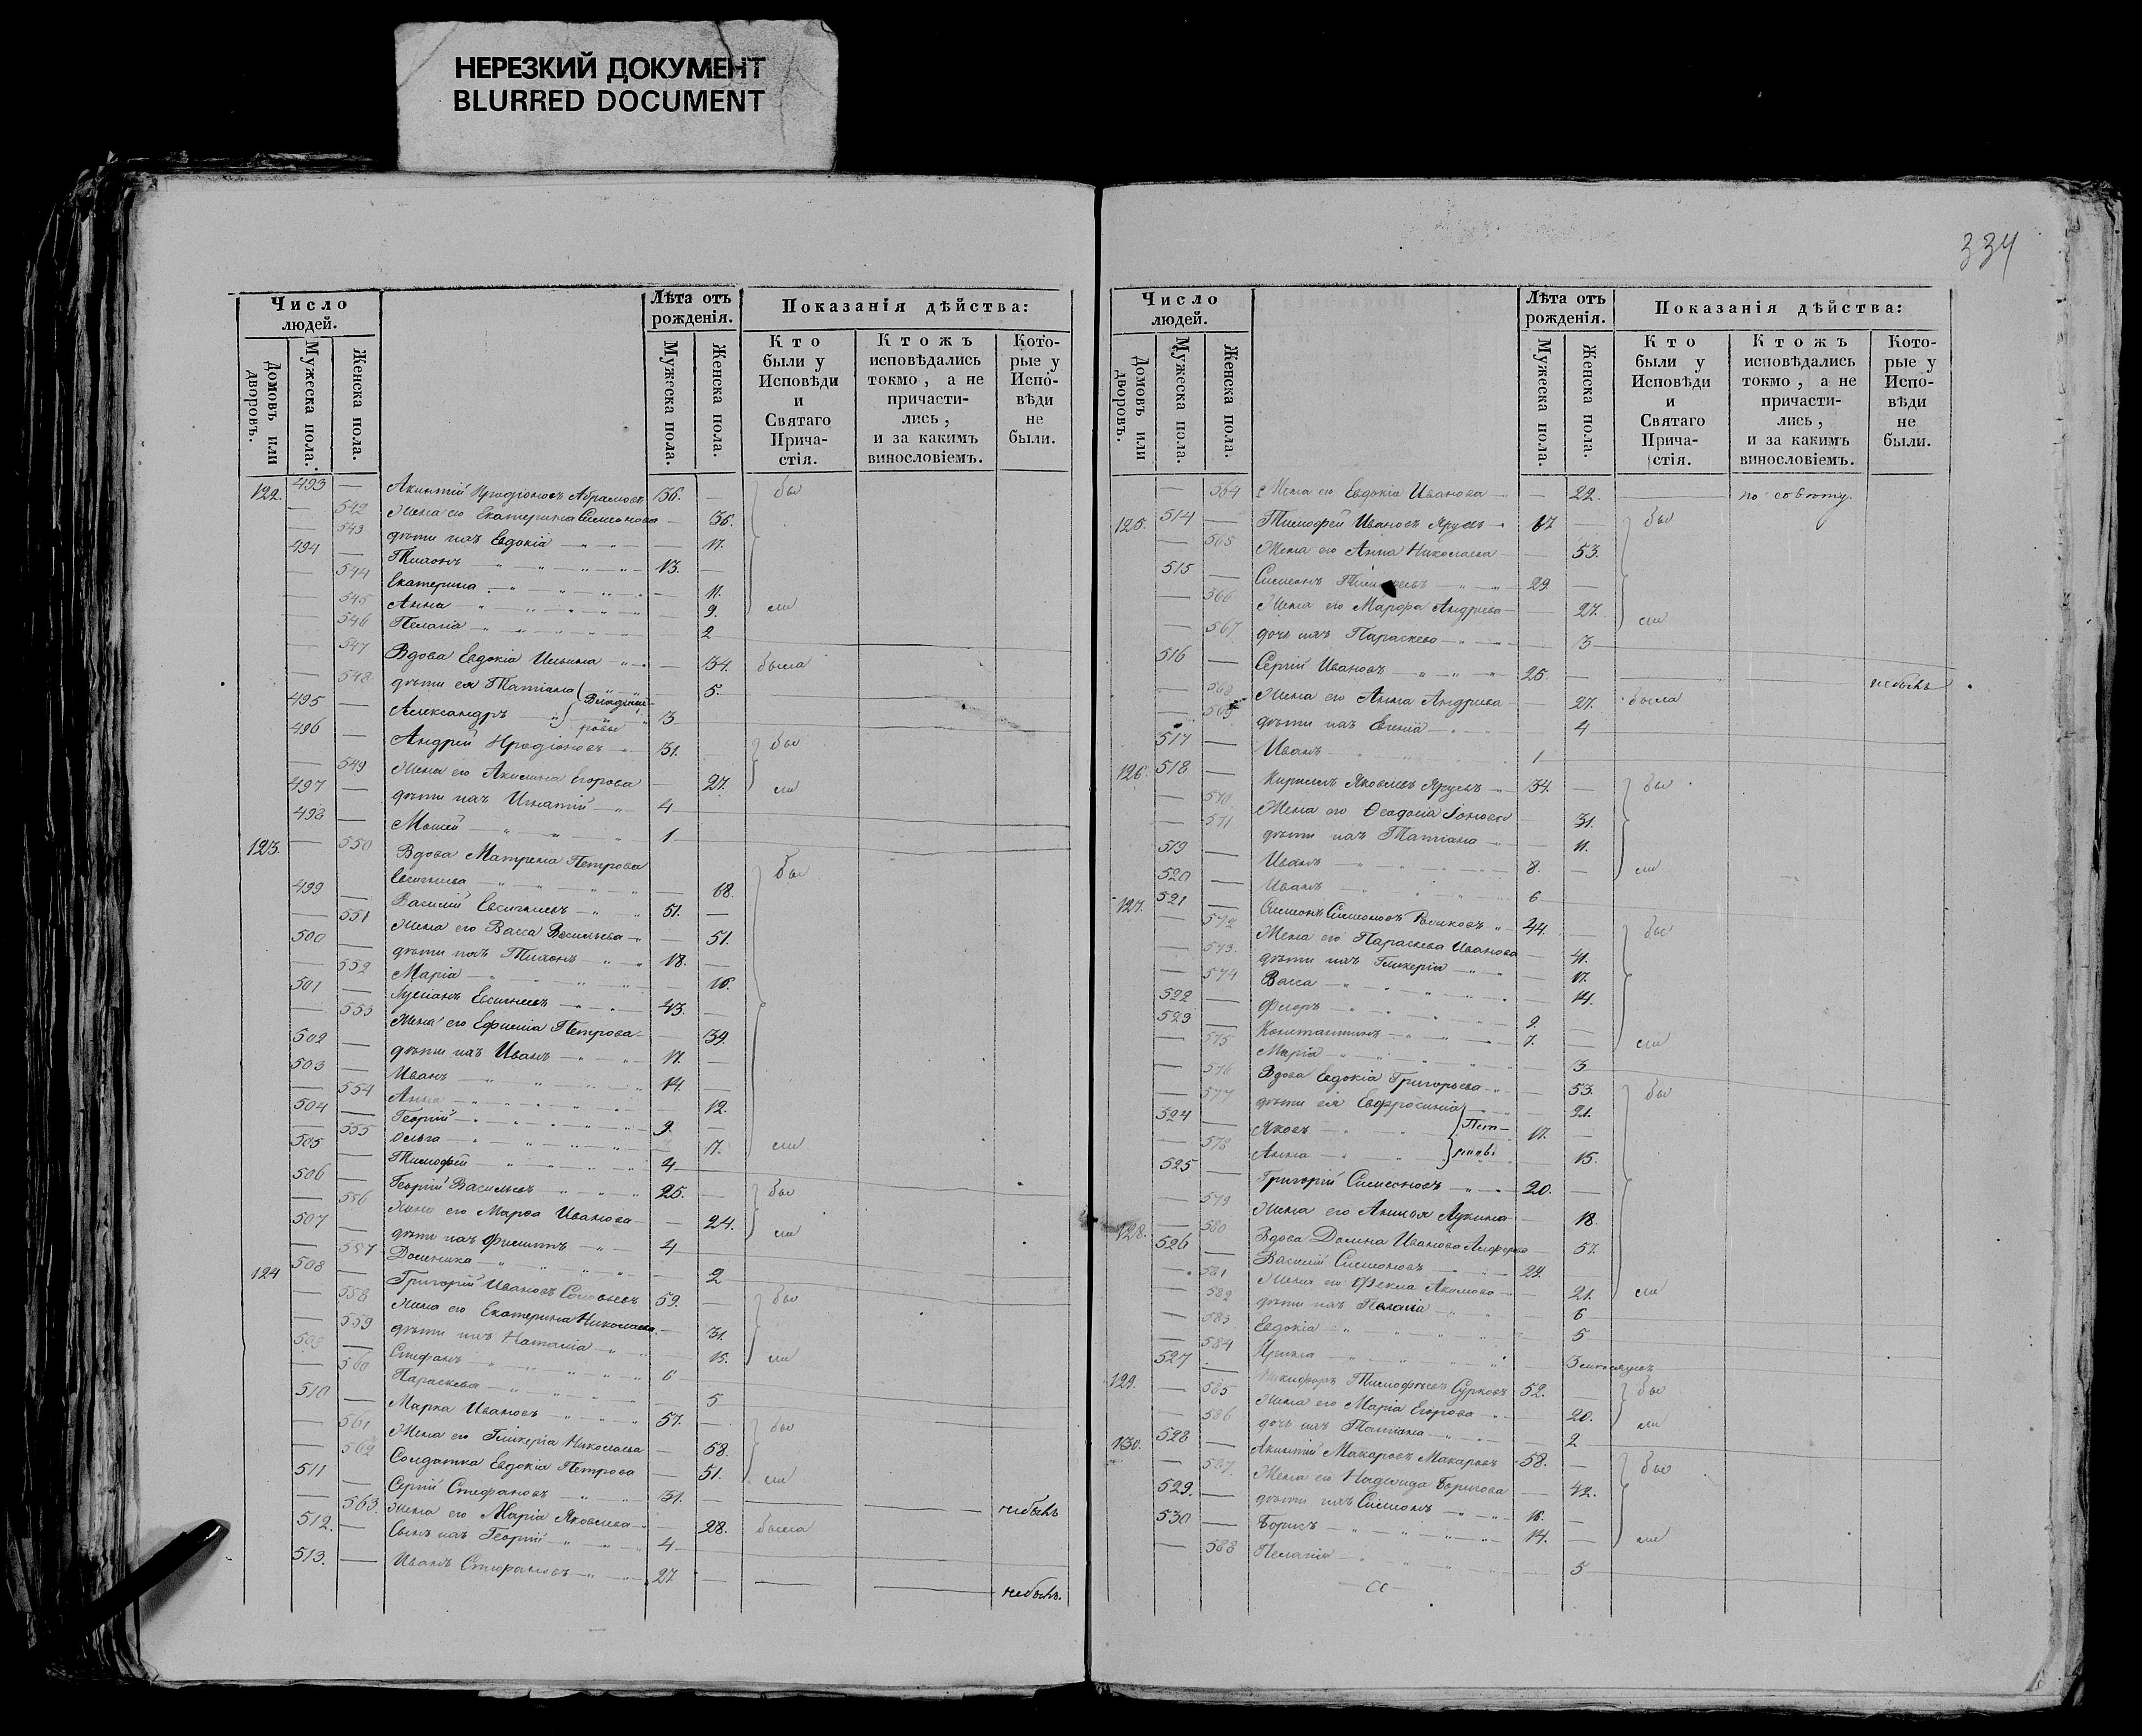 НЕРЕЗКИЙ ДОКУМЕНТ
BLURRED DOCUMENT
334
Число людей.
Лѣта отъ рожденія.
Показанія дѣйства:
Домовъ или дворовъ.
Мужеска пола.
Женска пола.
Мужеска пола.
Женска пола.
Кто были у Исповѣди и Святаго Прича-стія.
Ктожъ исповѣдались токмо, а не причасти-лись, и за какимъ винословіемъ.
Кото-рые у Испо-вѣди не были.
122. 493 — Акинтій Иродіоновъ Абрамовъ 36. — бы
— 542 Жена его Екатерина Симеонова — 36.
— 543 дѣти ихъ Евдокія — 17.
494 — Тихонъ 13. —
— 544 Екатерина — 11.
— 545 Анна — 9. ли
— 546 Пелагія — 2
— 547 Вдова Евдокія Ильина — 34. была
— 548 дѣти ея Татіана — 5.
495 — Александръ 3
496 — Андрей Иродіоновъ 31. — бы
— 549 Жена его Акилина Егорова — 27. ли
497 — дѣти ихъ Игнатій 4
498 — Моисей 1
123. — 550 Вдова Матрена Петрова
Евсигнѣева — 68. бы
499 — Василій Евсигнѣевъ 51. —
— 551 Жена его Васса Васильева — 51.
500 — дѣти ихъ Тихонъ 18. —
— 552 Марія — 16.
501 — Евсигнѣевъ 43. —
— 553 Жена его Ефимія Петрова — 39.
502 — дѣти ихъ Иванъ 17. —
503 — Иванъ 14. —
— 554 Анна — 12.
504 — Георгій 9. —
— 555 Ольга — ли
505 — Тимофей 4
506 — Георгій Васильевъ 25. — бы
— 556 Жена его Марѳа Иванова — 24. ли
507 — дѣти ихъ Филиппъ 4
— 557 Домника — 2
124 508 — Григорій Ивановъ Соловьевъ 59. — бы
— 558 Жена его Екатерина Николаева — 31.
— 559 дѣти ихъ Наталія — 15. ли
509 — Стефанъ 6
— 560 Параскева — 5
510 — Марка Ивановъ 57. — бы
— 561 Жена его Гликерія Николаева — 58.
— 562 Солдатка Евдокія Петрова — 51. ли
511 — Сергій Стефановъ 31. — небылъ
— 563. Жена его Марія Яковлева — 28. была
512. — Сынъ ихъ Георгій 4
513. — Иванъ Стефановъ 27. — небылъ.
Число людей.
Лѣта отъ рожденія.
Показанія дѣйства:
Домовъ или дворовъ.
Мужеска пола.
Женска пола.
Мужеска пола.
Женска пола.
Кто были у Исповѣди и Святаго Прича-стія.
Ктожъ исповѣдались токмо, а не причасти-лись, и за какимъ винословіемъ.
Кото-рые у Испо-вѣди не были.
— 564 Жена его Евдокія Иванова — 22. — по совѣту.
125. 514 — Тимофей Ивановъ — бы
— 565 Жена его Анна Николаева — 53.
515 — Симеонъ 29 —
— 566 Жена его Марфа Андреева — 27. ли
— 567 дочь ихъ Параскева — 3
516 — Сергій Ивановъ 25. — небылъ
— 568 Жена его Анна Андреева — 27. была
— 569 дѣти ихъ — 4
517 — Иванъ 1
126. 518 — Кириллъ Яковлевъ 34. — бы
— 570 Жена его Ѳеодосія Іонова — 31.
— 571 дѣти ихъ Татіана — 11.
519 — Иванъ 8. — ли
520 — Иванъ 6
127. 521 — Симеонъ Симеоновъ 44. — бы
— 572 Жена его Параскева Иванова — 41.
— 573. дѣти ихъ Гликерія — 17.
— 574 Васса — 14.
522 — Флоръ 9. —
523 — Константинъ 7. — ли
— 575 Марія — 3
— 576 Вдова Евдокія Григорьева — 53. бы
— 577 дѣти ея Евфросинія — 21.
524 — Яковъ 17. —
— 578 Анна — 15.
525 — Григорій Симеоновъ 20. —
— 579 Жена его Лукина — 18.
128. — 580 Вдова Домна Иванова — 57.
526 — Василій Симеоновъ 24. —
— 581 Жена его Ѳекла Акимова — 21. ли
— 582 дѣти ихъ Пелагія — 6
— 583 Евдокія — 5
— 584 Ирина — 3
129. 527 — Никифоръ Тимофѣевъ Сурковъ 52. — бы
— 585 Жена его Марія Егорова — 20. ли
— 586 дочь ихъ Татіана — 2
130. 528 — Акинтій Макаровъ Макаровъ 58. — бы
— 587. Жена его Надежда Борисова — 42.
529. — дѣти ихъ Симеонъ 16. —
530 — Борисъ 14. — ли
— 588 Пелагія — 5